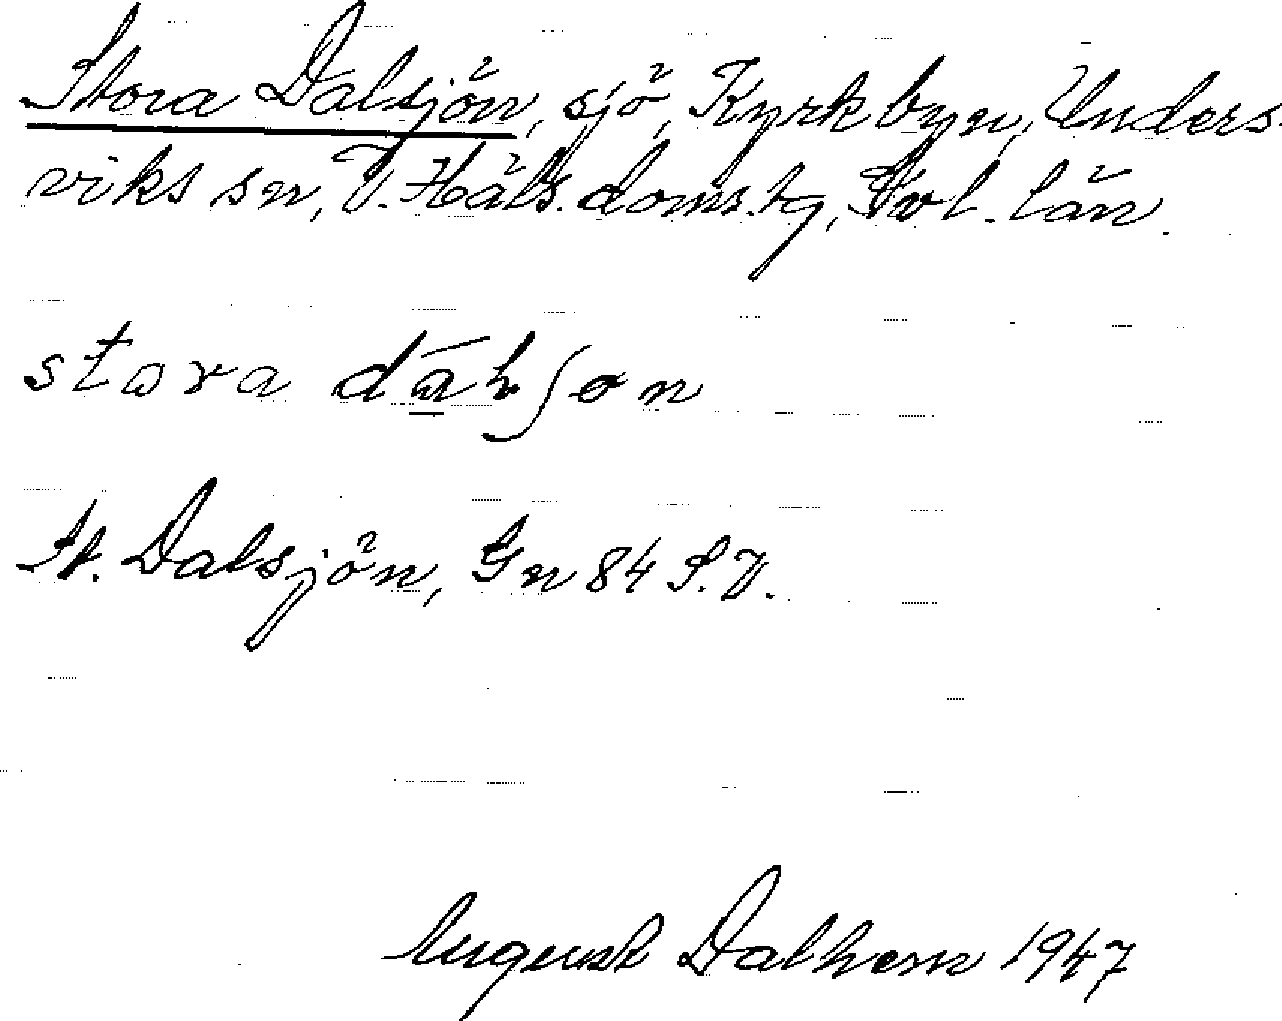 Stora Dalsjön, sjö, Kyrkbyn, Unders-
viks sn, V. Häls. doms. tg, Gvl. län.
stora dālʃon
St. Dalsjön, Gn 84 S.V.
August Dalhem 1947